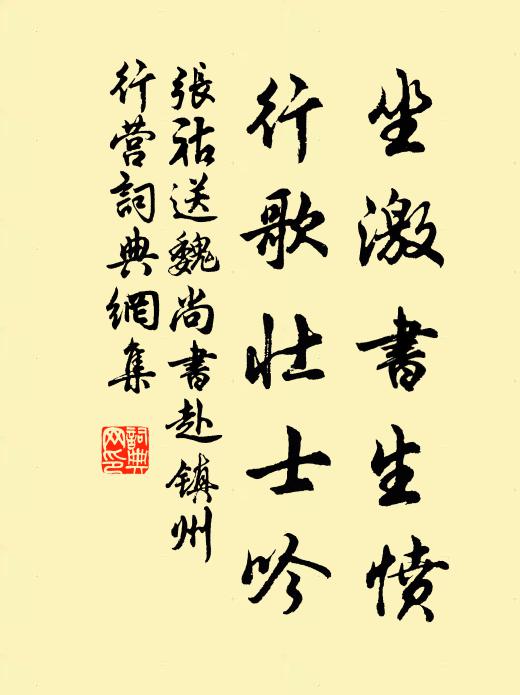 坐激書生憤
行歌壯士吟
張祜送魏尚書赴鎮州
行營詞典網集
詞典網印